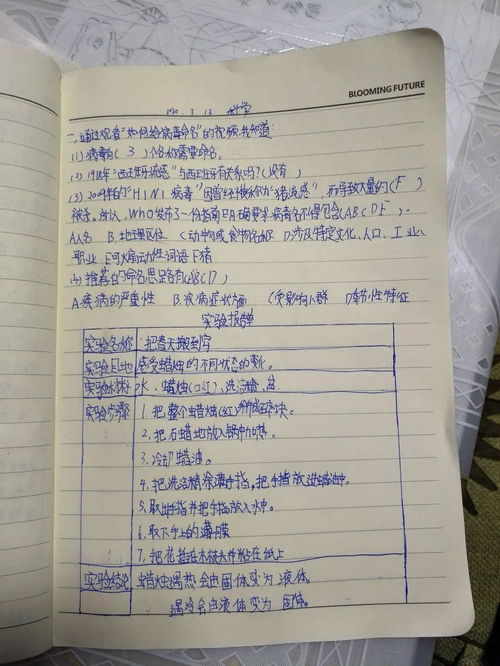 BLOOMING FUTURE
3. 13 科学
一、通过观看"如何给病毒命名"的视频我知道:
(1) 病毒有( 3 )个名称需要命名。
(2) 1918年"西班牙流感"与西班牙有关系吗?(没有)
(3) 2009年的"H1N1病毒"因曾经被称为"猪流感",而导致大量的( F )
被杀。所以,WHO发布了一份指南明确要求病毒名不得包含(ABCDF)。
A人名 B地理区位 C动物或食物名称 D涉及特定文化、人口、工业、
职业 E可煽动性词语 F猪
(4) 推荐的命名思路有(ABCD)
A疾病的严重性 B疾病症状方面 C受影响人群 D季节性特征
实验报告单
实验名称 把春天搬到家
实验目地 感受蜡烛的不同状态的变化。
实验材料 水、蜡烛(口红)、洗洁精、盆
实验步骤 1. 把整个蜡烛(红)掰成碎块。
2. 把石蜡地放入锅中加热。
3. 冷却蜡油。
4. 把洗洁精涂满手指,把手指放进蜡油中。
5. 取出手指并把手指放入水中。
6. 取下手上的薄膜
7. 把花插在木枝头并粘在纸上
实验结论 蜡烛遇热会由固体变为液体。
遇冷会由液体变为固体。